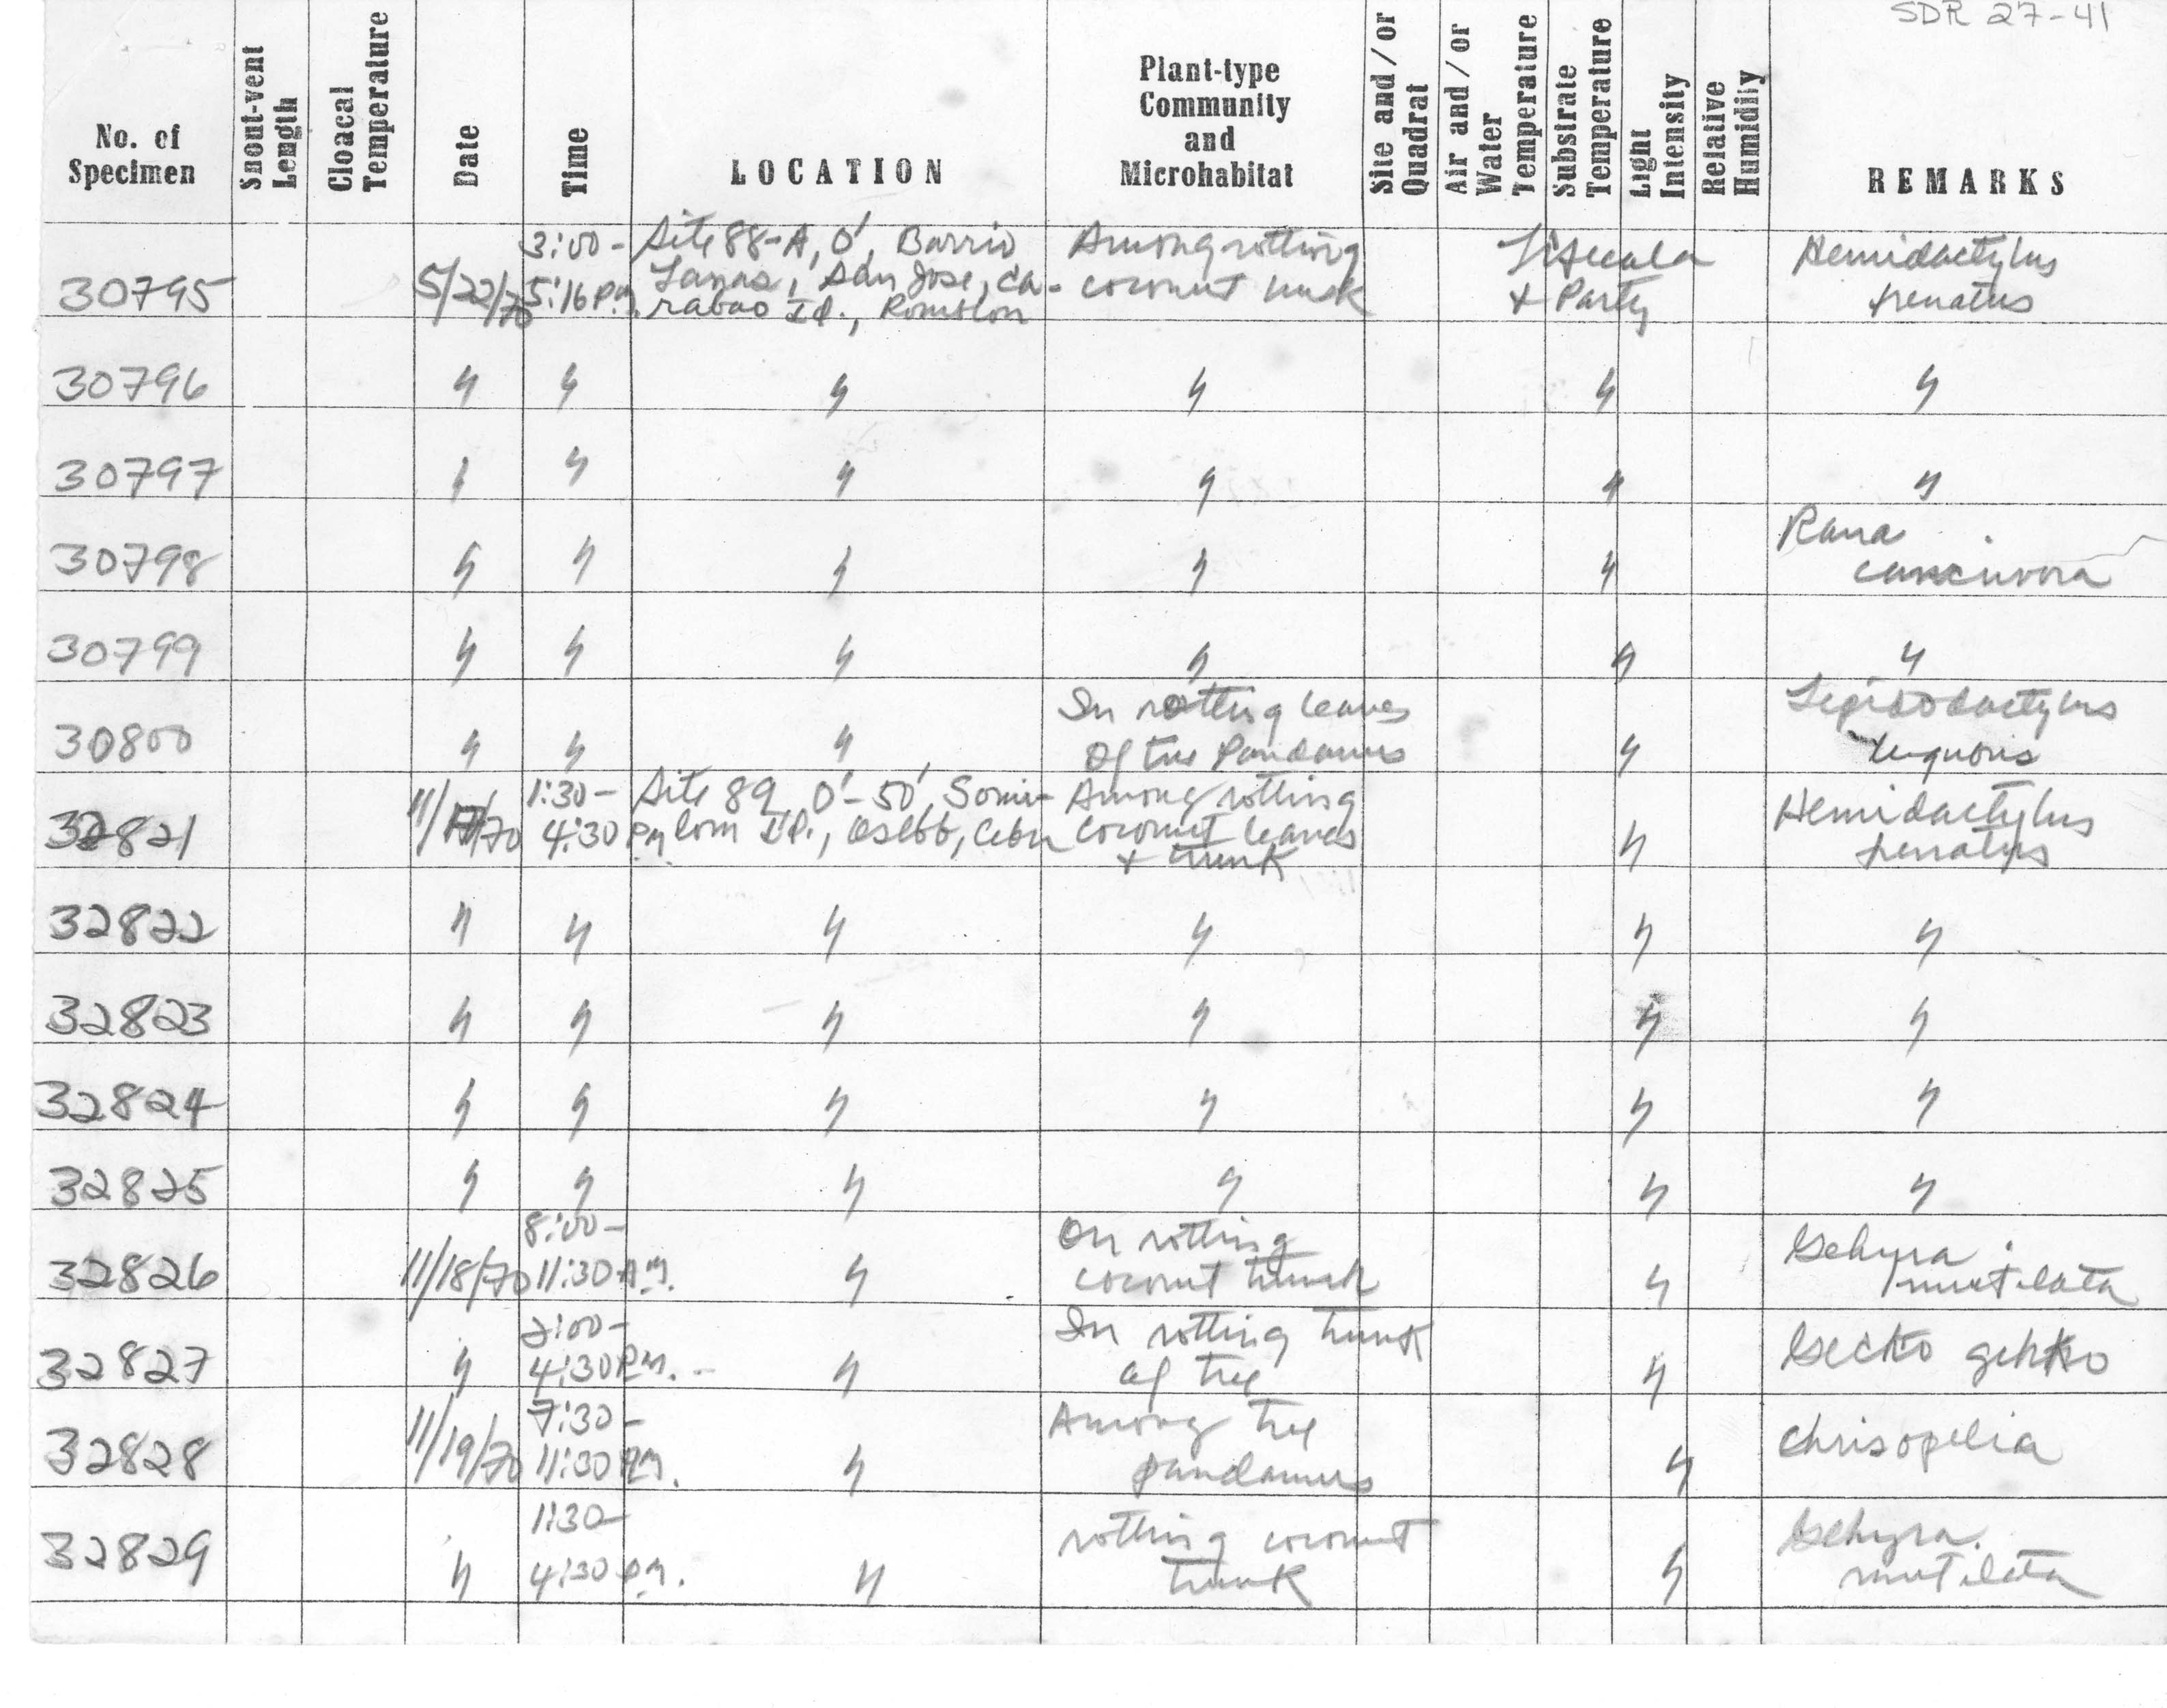 SDR 27-41
No. of Specimen Snout-vent Length Cloacal Temperature Date Time LOCATION Plant-type Community and Microhabitat Site and/or Quadrat Air and/or Water Temperature Substrate Temperature Light Intensity Relative Humidity REMARKS
3:00- Site 88-A, 0', Barrio Among rotting Hemidactylus
30795 5/22/70 5:16 P.M. San Jose, Ca- coconut husk & Party frenatus
rabao Id., Romblon
30796 " " " " " "
30797 " " " " " "
Rana
30798 " " " " " cancrivora
30799 " " " " " "
In rotting leaves
30800 " " " Of tree Pandanus " lugubris
11/17/70 1:30- Site 89, 0'-50', Somi- Among rotting Hemidactylus
32821 4:30 PM lom Id., Cebu coconut leaves " frenatus
& trunk
32822 " " " " " "
32823 " " " " " "
32824 " " " " " "
32825 " " " " " "
8:00- On rotting Gehyra
32826 11/18/70 11:30 A.M. " coconut trunk " mutilata
2:00- In rotting trunk
32827 " 4:30 P.M. " of tree " Gecko gekko
7:30- Among tree
32828 11/19/70 11:30 " pandanus " Chrisopelia
1:30- rotting coconut Gehyra
32829 " 4:30 P.M. " trunk " mutilata